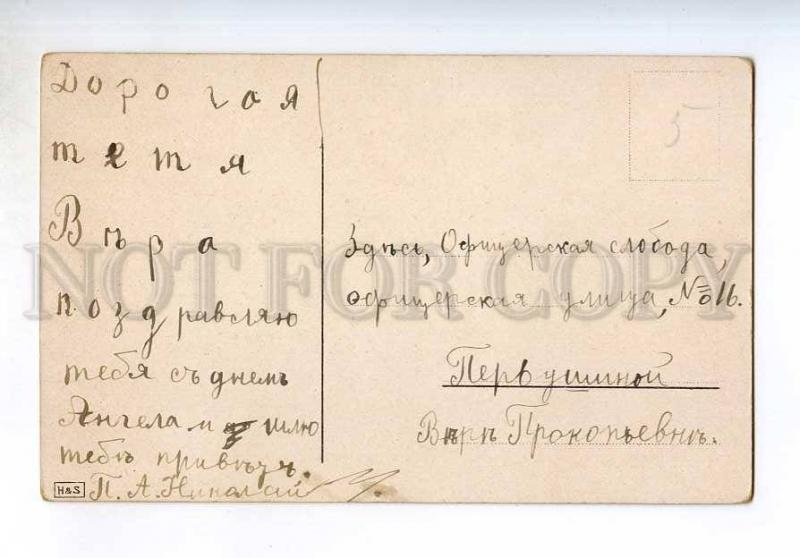 Дорогая
тетя
Вѣра
поздравляю
тебя съ днемъ
Ангела и шлю
тебѣ привѣтъ.
П. А. Николай
H&S
5
Здѣсь, Офицерская слобода,
офицерская улица, № 16.
Первушиной
Вѣрѣ Прокопьевнѣ.
NOT FOR COPY